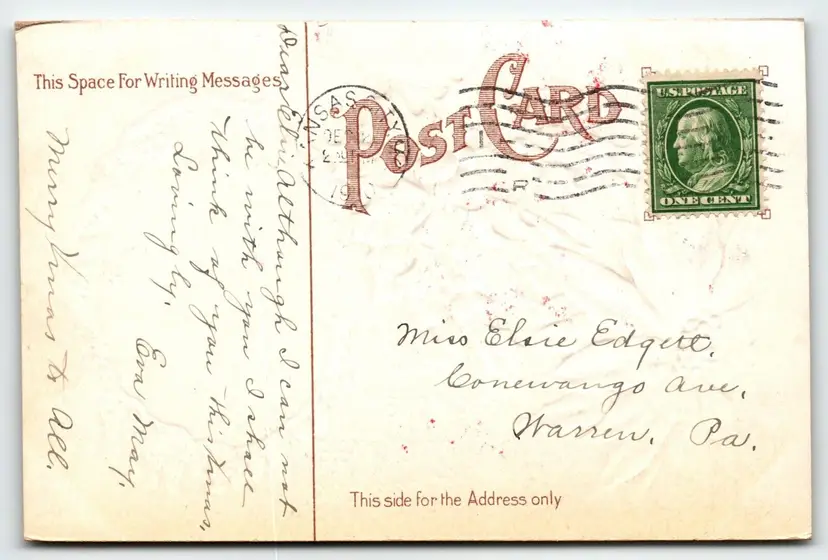 This Space For Writing Messages
POST CARD
U.S. POSTAGE
ONE CENT
KANSAS CITY
DEC
Dear Elsie, Although I can not
be with you I shall
think of you this Xmas.
Lovingly,
Eva May.
Merry Xmas to All.
Miss Elsie Edgett,
Conewango Ave,
Warren, Pa.
This side for the Address only